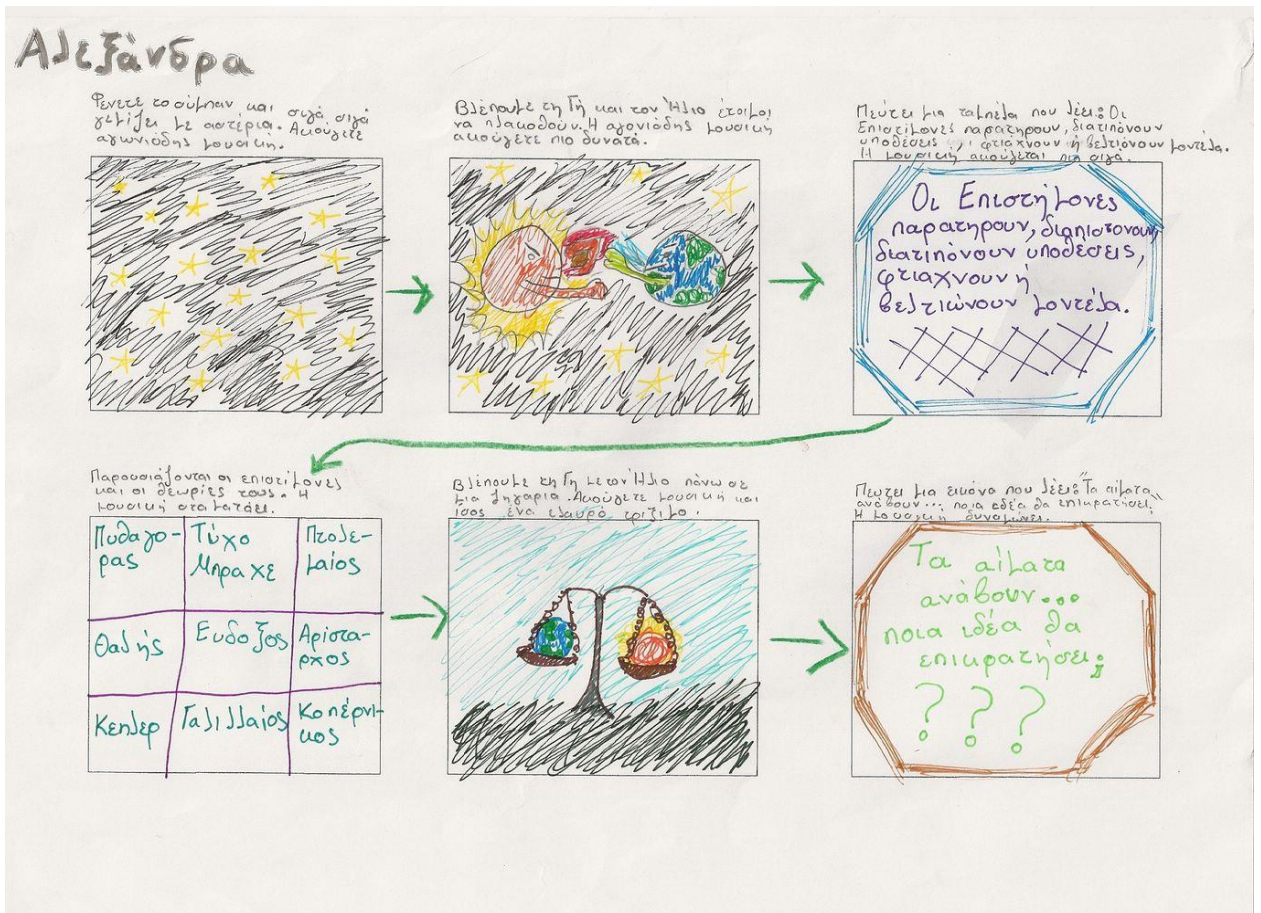 Αλεξάνδρα
Φενετε το σύμπαν και σιγά σιγά
γεμίζει με αστέρια. Ακούγετε
αγωνιόδης μουσική.
Βλέπουμε τη Γή και τον Ήλιο έτοιμοι
να πλακοθούν. Η αγονιόδης μουσική
ακούγετε πιο δυνατά.
Πεύτει μια ταμπέλα που λέει: Οι
Επιστίμονες παρατηρουν, διατιπόνουν
υποθέσεις φτιάχνουν ή βελτιόνουν μοντέλα.
Η μουσική ακούγεται πιο σιγά.
Οι Επιστήμονες
παρατηρουν, διαπιστονουν,
διατιπόνουν υποθέσεις,
φτιαχνουν ή
βελτιώνουν μοντέλα.
Παρουσιάζονται οι επιστίμονες
και οι θεωρίες τους. Η
μουσική σταματάει.
Πυθαγο-
ρας
Τύχο
Μπραχε
Πτολε-
μαίος
Θαλής
Ευδοξος
Αρίστα-
ρχος
Κεπλερ
Γαλιλλαίος
Κοπέρνι-
κος
Βλέπουμε τη Γη με τον Ήλιο πάνω σε
μια ζηγαρια. Ακούγετε μουσική και
ίσος ένα ελαυρό τρίξιμο.
Πευτει μια εικόνα που λέει: "Τα αίματα
ανάβουν... ποια εδέα θα επικρατήσει;"
Η μουσική δυναμώνει.
Τα αίματα
ανάβουν...
ποια ιδέα θα
επικρατήσει;
? ? ?